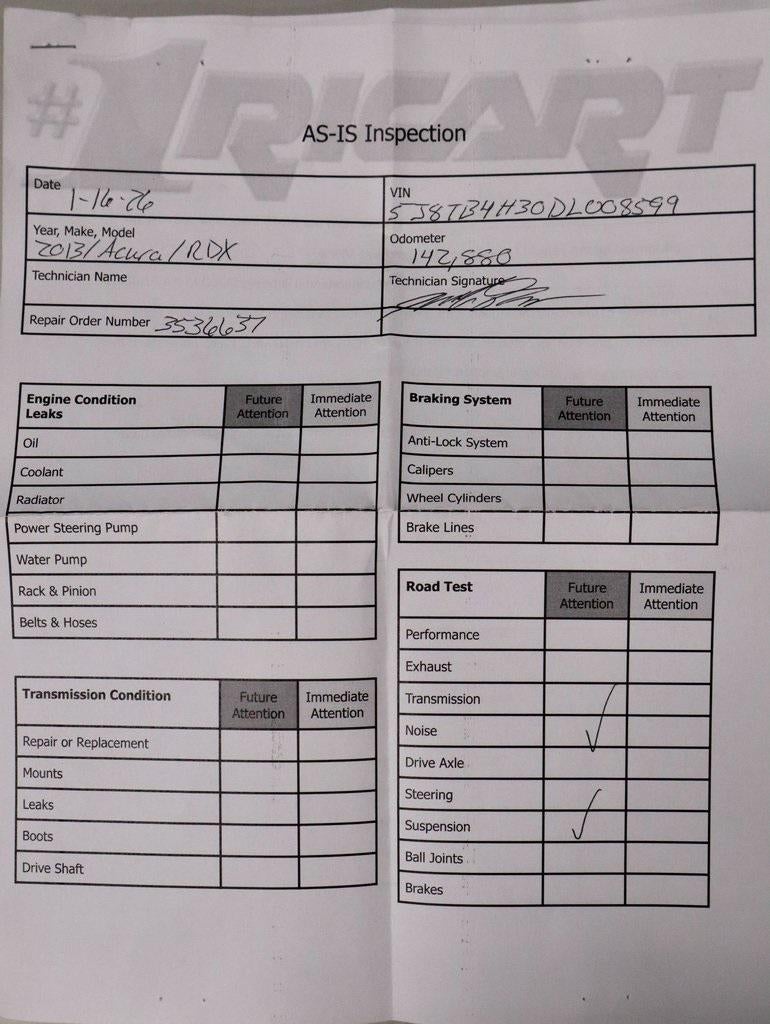 #1 RICART
AS-IS Inspection
Date 1-16-26
VIN 5J8TB4H30DL008599
Year, Make, Model 2013/Acura/RDX
Odometer 142,880
Technician Name
Technician Signature
Repair Order Number 3536637
Engine Condition Leaks Future Attention Immediate Attention
Oil
Coolant
Radiator
Power Steering Pump
Water Pump
Rack & Pinion
Belts & Hoses
Transmission Condition Future Attention Immediate Attention
Repair or Replacement
Mounts
Leaks
Boots
Drive Shaft
Braking System Future Attention Immediate Attention
Anti-Lock System
Calipers
Wheel Cylinders
Brake Lines
Road Test Future Attention Immediate Attention
Performance
Exhaust
Transmission
Noise
Drive Axle
Steering
Suspension
Ball Joints
Brakes